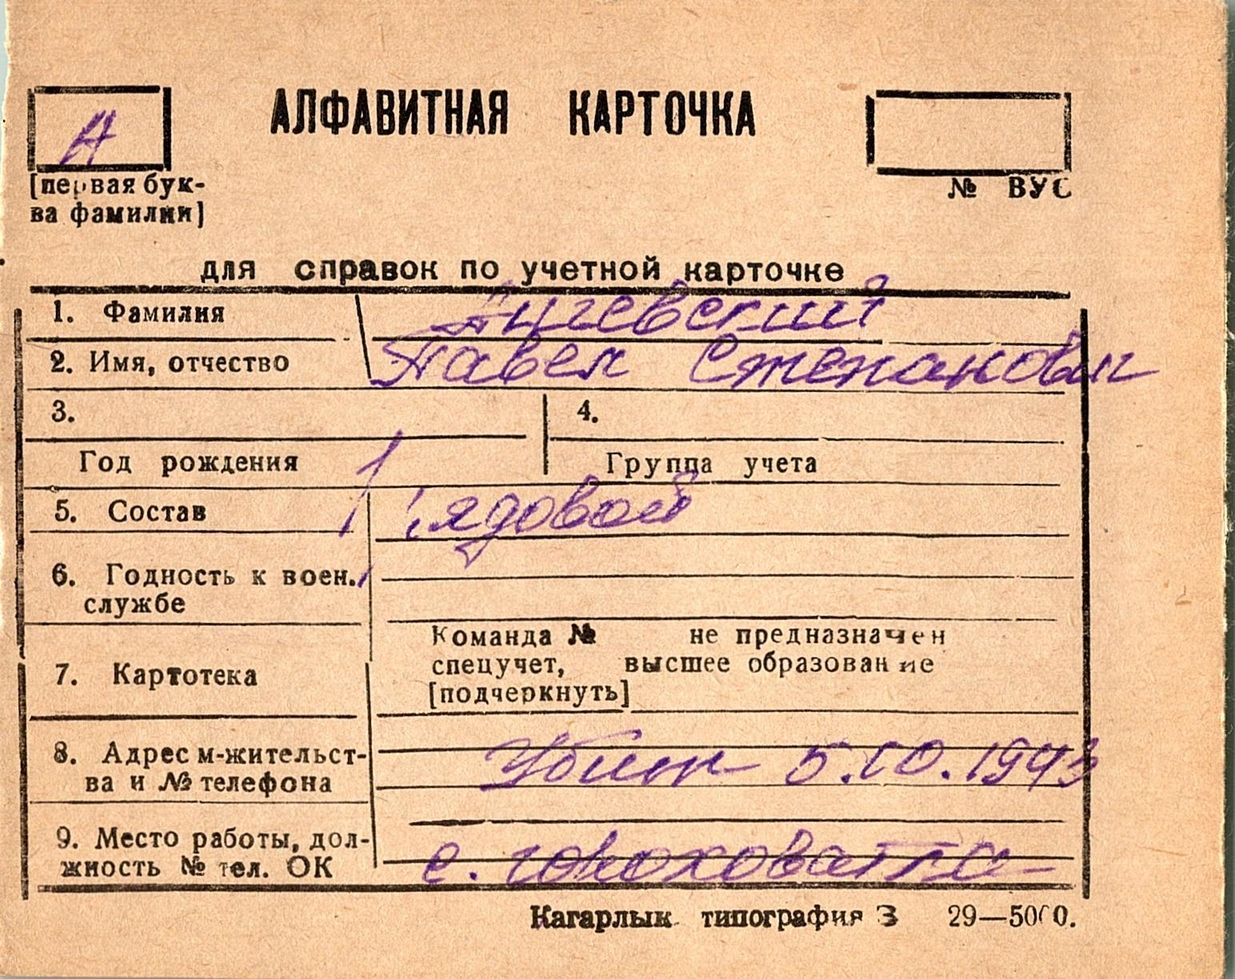 АЛФАВИТНАЯ КАРТОЧКА
А
[первая бук-
ва фамилии]
№ ВУС
для справок по учетной карточке
1. Фамилия
2. Имя, отчество Павел Степанович
3. 4.
Год рождения Группа учета
5. Состав Рядовой
6. Годность к воен.
службе
7. Картотека
Команда № не предназначен
спецучет, высшее образование
[подчеркнуть]
8. Адрес м-жительст-
ва и № телефона
Убит 5.10.1943
9. Место работы, дол-
жность № тел. ОК
с. Гороховатка
Кагарлык типография З 29—5000.